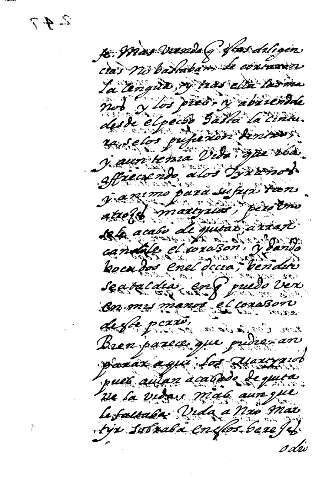 247
se. Mas viendo q̃ estas diligen
cias no bastaban le cortaron
la lengua, y tras ella las ma
nos y los pies, y abriendole
desde el pecho hasta la cintu
ra se los pusieron dentro,
y aun tenia Vida, que iba
offreciendo a los
y animo para sufrir tan
atroçes martyrios, pero
se la acabo de quitar arran
candole el coraçon, y dando
bocados en el decia, bendito
sea el dia, en q̃ puedo ver
en mis manos el coraçon
de este perro.
Bien parece que pudieran
parar aqui los Martyrios
pues auian acabado de quita
rle la vida. Mas aunque
le faltaba Vida a Nro Mar
tyr sobraba en los herejes
odio